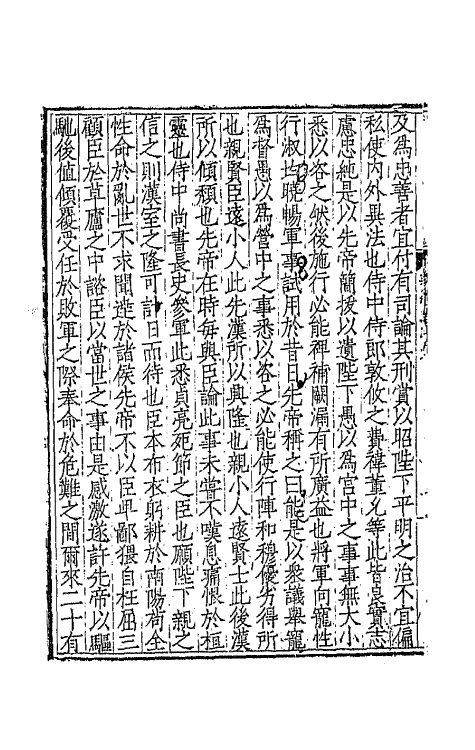 及為忠善者宜付有司論其刑賞以昭陛下平明之治不宜偏
私使內外異法也侍中侍郎郭攸之費禕董允等此皆良實志
慮忠純是以先帝簡拔以遺陛下愚以為宮中之事事無大小
悉以咨之然後施行必能裨補闕漏有所廣益也將軍向寵性
行淑均曉暢軍事試用於昔日先帝稱之曰能是以衆議舉寵
為督愚以為營中之事悉以咨之必能使行陣和穆優劣得所
也親賢臣遠小人此先漢所以興隆也親小人遠賢士此後漢
所以傾頹也先帝在時每與臣論此事未嘗不嘆息痛恨於桓
靈也侍中尚書長史參軍此悉貞亮死節之臣也願陛下親之
信之則漢室之隆可計日而待也臣本布衣躬耕於南陽苟全
性命於亂世不求聞達於諸侯先帝不以臣卑鄙猥自枉屈三
顧臣於草廬之中諮臣以當世之事由是感激遂許先帝以驅
馳後值傾覆受任於敗軍之際奉命於危難之間爾來二十有